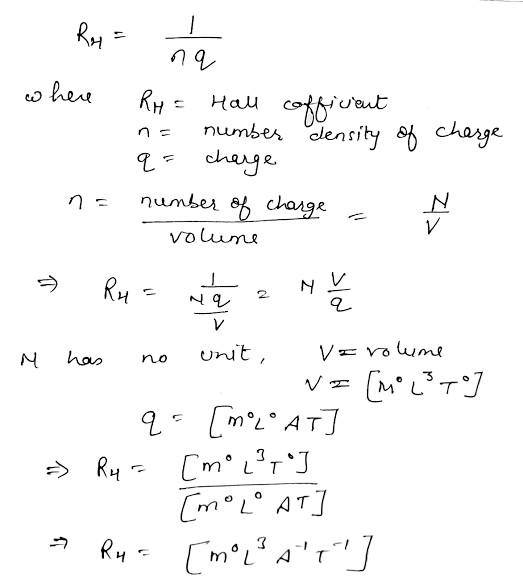 R_H = 1 / nq
where R_H = Hall cofficient
n = number density of charge
q = charge
n = number of charge / volume = N / V
⇒ R_H = 1 / (N q / V) = N V / q
N has no unit, V = volume
V = [M⁰ L³ T⁰]
q = [M⁰ L⁰ A T]
⇒ R_H = [M⁰ L³ T⁰] / [M⁰ L⁰ A T]
⇒ R_H = [M⁰ L³ A⁻¹ T⁻¹]